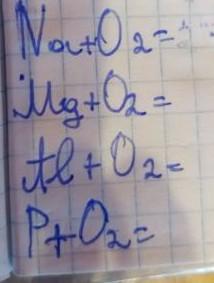 Na+O2=
Mg+O2=
Al+O2=
P+O2=